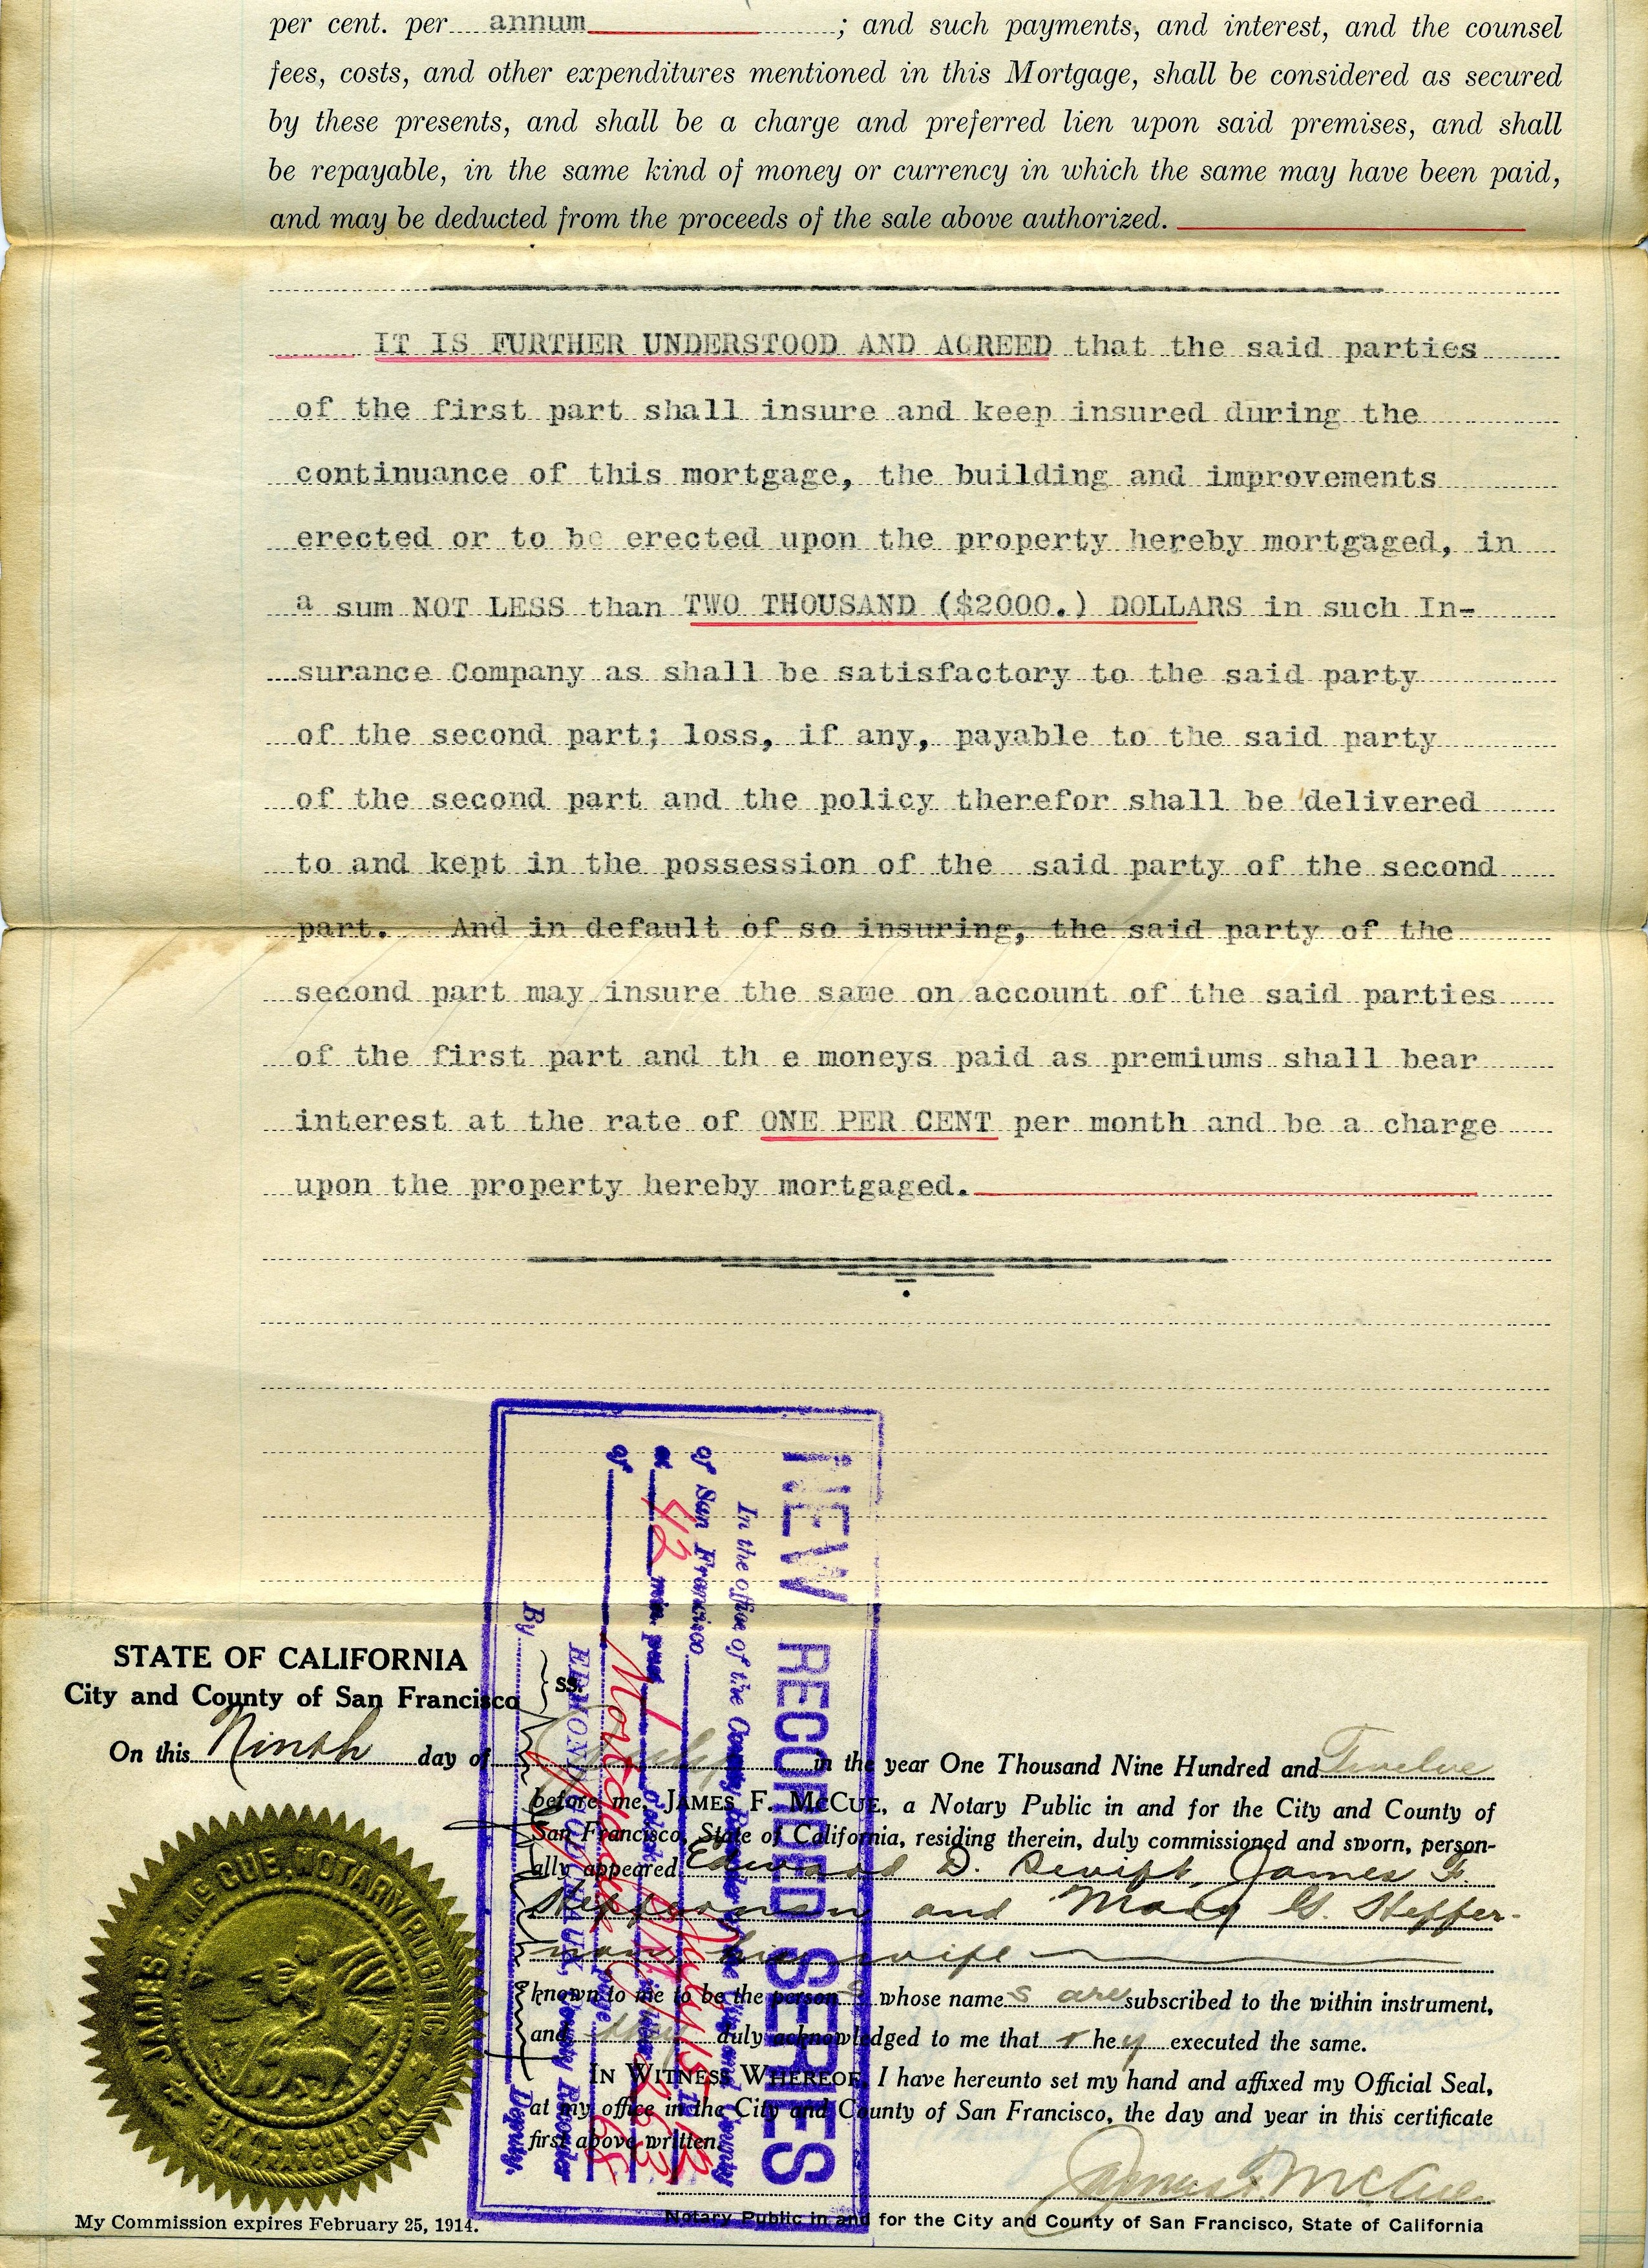 per cent. per annum ; and such payments, and interest, and the counsel
fees, costs, and other expenditures mentioned in this Mortgage, shall be considered as secured
by these presents, and shall be a charge and preferred lien upon said premises, and shall
be repayable, in the same kind of money or currency in which the same may have been paid,
and may be deducted from the proceeds of the sale above authorized.
IT IS FURTHER UNDERSTOOD AND AGREED that the said parties
of the first part shall insure and keep insured during the
continuance of this mortgage, the building and improvements
erected or to be erected upon the property hereby mortgaged, in
a sum NOT LESS than TWO THOUSAND ($2000.) DOLLARS in such In-
surance Company as shall be satisfactory to the said party
of the second part; loss, if any, payable to the said party
of the second part and the policy therefor shall be delivered
to and kept in the possession of the said party of the second
part. And in default of so insuring, the said party of the
second part may insure the same on account of the said parties
of the first part and th e moneys paid as premiums shall bear
interest at the rate of ONE PER CENT per month and be a charge
upon the property hereby mortgaged.
STATE OF CALIFORNIA
City and County of San Francisco } ss.
On this Ninth day of in the year One Thousand Nine Hundred and Twelve
before me, JAMES F. McCUE, a Notary Public in and for the City and County of
San Francisco, State of California, residing therein, duly commissioned and sworn, person-
ally appeared Edward D. Swift, James F.
Heffernan and Mary G. Heffer-
nan, his wife
known to me to be the persons whose names are subscribed to the within instrument,
and they duly acknowledged to me that they executed the same.
IN WITNESS WHEREOF, I have hereunto set my hand and affixed my Official Seal,
at my office in the City and County of San Francisco, the day and year in this certificate
first above written.
James F. McCue
Notary Public in and for the City and County of San Francisco, State of California
My Commission expires February 25, 1914.
JAMES F. McCUE, NOTARY PUBLIC
CITY AND COUNTY OF
SAN FRANCISCO, CAL.
NEW RECORDED SERIES
In the office of the County Recorder of the City and County
of San Francisco
at 42 min. past
of Mortgages
By Deputy.